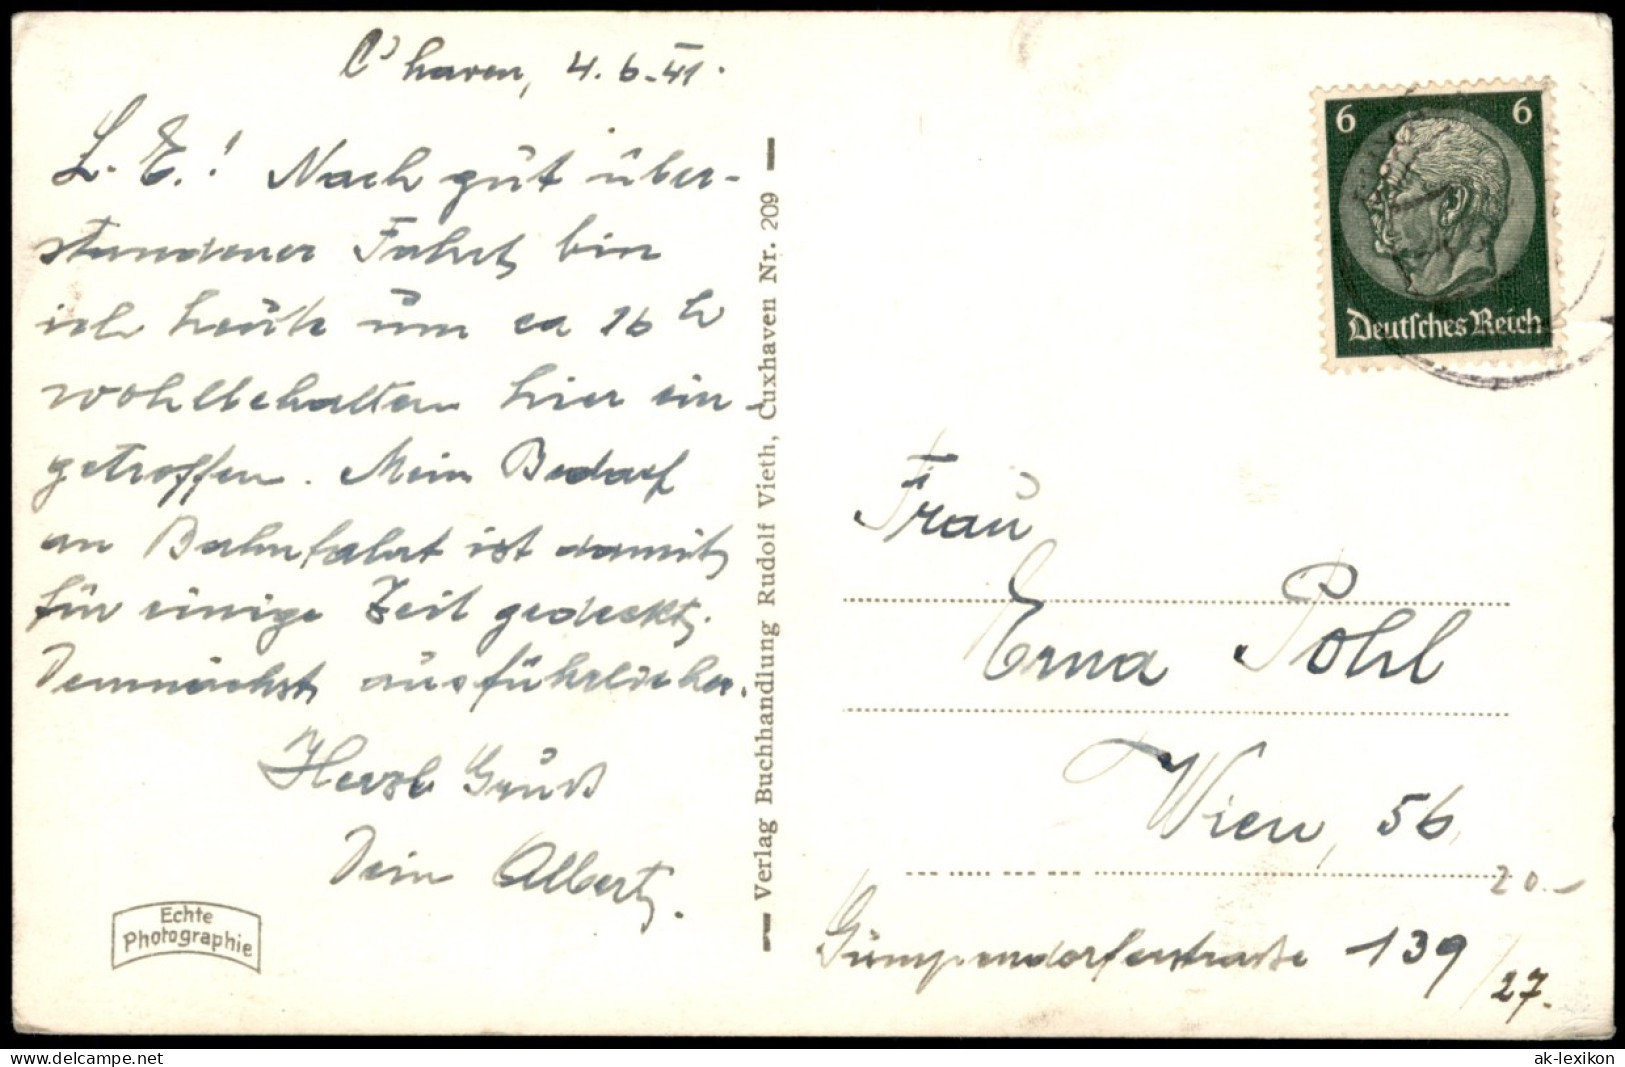 C'haven, 4.6.41.
L. E.! Nach gut über-
standener Fahrt bin
ich heute um ca 16 h
wohlbehalten hier ein-
getroffen. Mein Bedarf
an Bahnfahrt ist damit
für einige Zeit gedeckt.
Demnächst ausführlicher.
Herzl. Gruß
Dein Albert.
Echte
Photographie
Verlag Buchhandlung Rudolf Vieth, Cuxhaven Nr. 209
6 6
Deutsches Reich
Frau
Erna Pohl
Wien, 56
20.-
Gumpendorferstraße 139/27.
ak-lexikon
www.delcampe.net